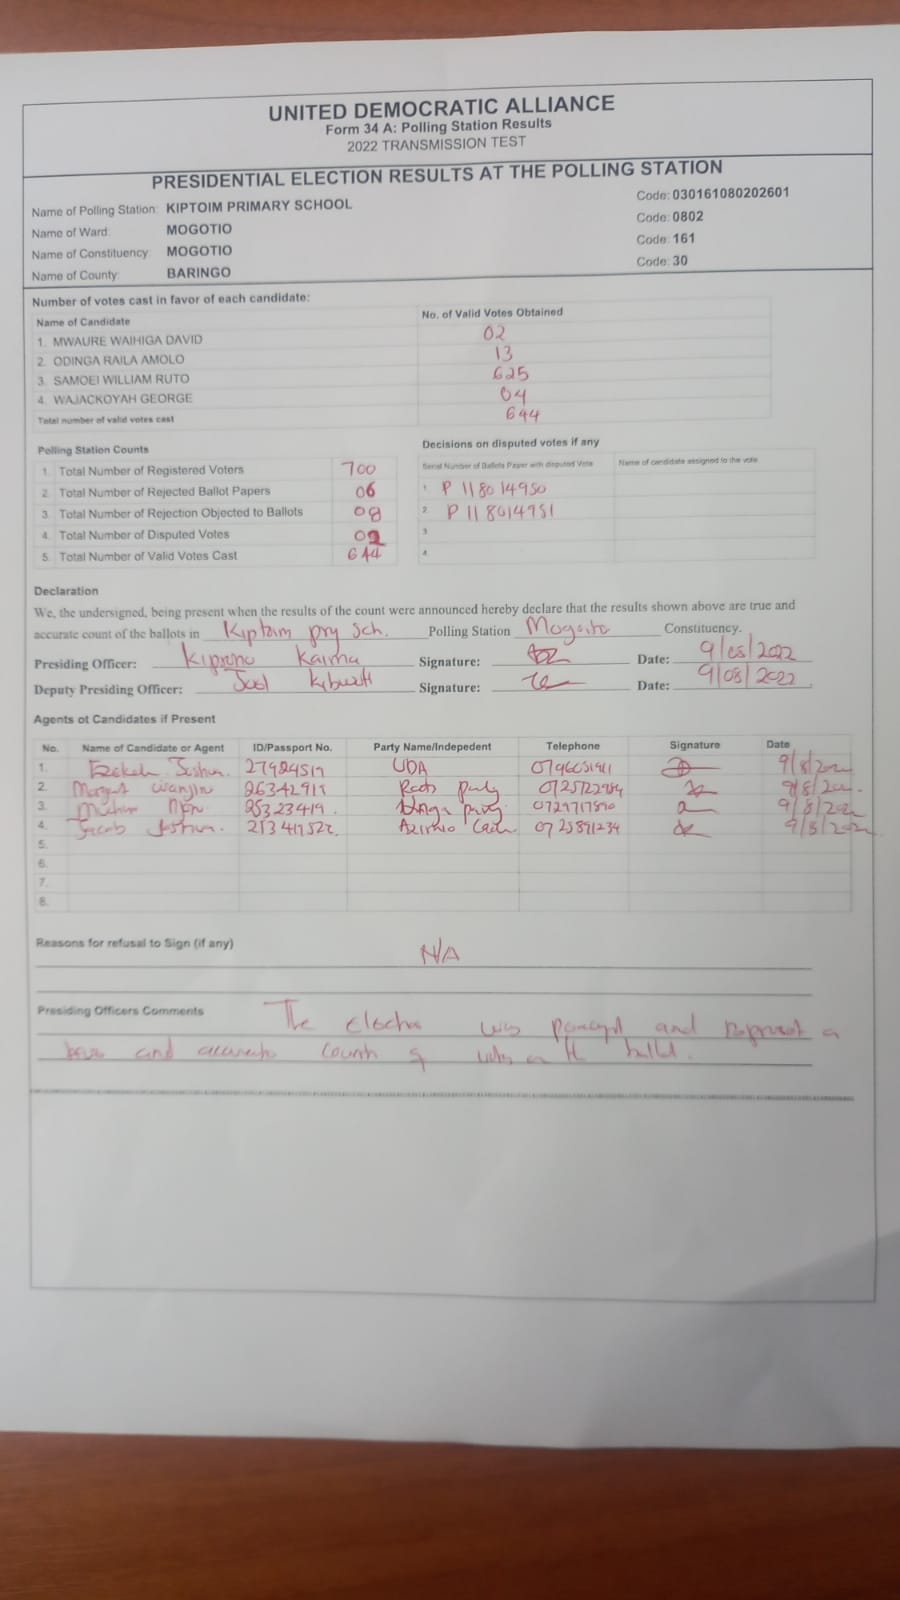 UNITED DEMOCRATIC ALLIANCE
Form 34 A: Polling Station Results
2022 TRANSMISSION TEST
PRESIDENTIAL ELECTION RESULTS AT THE POLLING STATION
Name of Polling Station: KIPTOIM PRIMARY SCHOOL Code: 030161080202601
Name of Ward: MOGOTIO Code: 0802
Name of Constituency: MOGOTIO Code: 161
Name of County: BARINGO Code: 30
Number of votes cast in favor of each candidate:
Name of Candidate No. of Valid Votes Obtained
1. MWAURE WAIHIGA DAVID 02
2. ODINGA RAILA AMOLO 13
3. SAMOEI WILLIAM RUTO 625
4. WAJACKOYAH GEORGE 04
Total number of valid votes cast 644
Polling Station Counts
1. Total Number of Registered Voters 700
2. Total Number of Rejected Ballot Papers 06
3. Total Number of Rejection Objected to Ballots 08
4. Total Number of Disputed Votes 02
5. Total Number of Valid Votes Cast 644
Decisions on disputed votes if any
Serial Number of Ballots Paper with disputed Vote Name of candidate assigned to the vote
1. P 118014950
2. P 118014951
3.
4.
Declaration
We, the undersigned, being present when the results of the count were announced hereby declare that the results shown above are true and
accurate count of the ballots in Kiptoim pry Sch. Polling Station Constituency.
Presiding Officer: Kaima Signature: Date: 9/08/2022
Deputy Presiding Officer: Joel Signature: Date: 9/08/2022
Agents ot Candidates if Present
No. Name of Candidate or Agent ID/Passport No. Party Name/Indepedent Telephone Signature Date
1. UDA
2. Wanjiru
3. 25323419
4. Jacob Azimio 0725891234
5.
6.
7.
8.
Reasons for refusal to Sign (if any)
N/A
Presiding Officers Comments The was and
and count